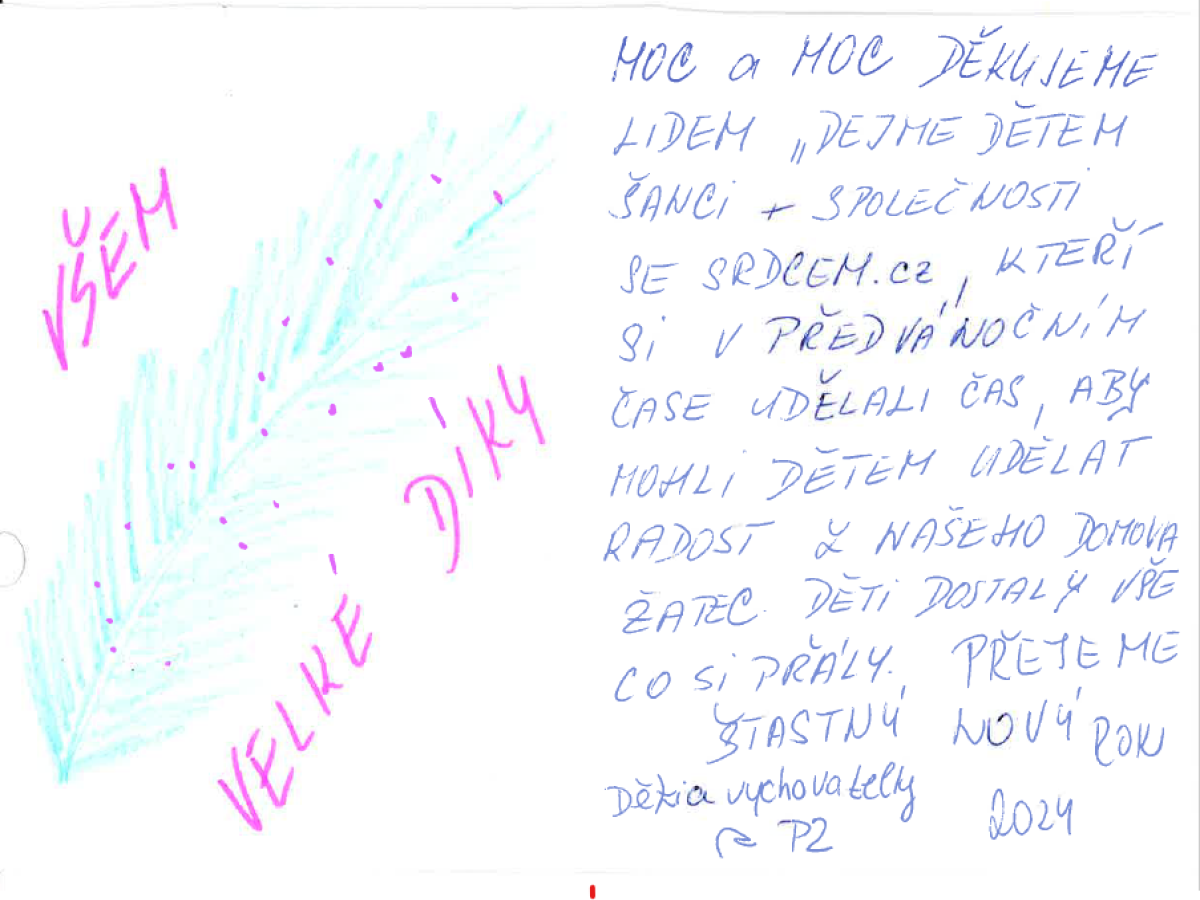 VŠEM
VELKÉ DÍKY
MOC a MOC DĚKUJEME
LIDEM „DEJME DĚTEM
ŠANCI + SPOLEČNOSTI
SE SRDCEM.cz, KTEŘÍ
SI V PŘEDVÁNOČNÍM
ČASE UDĚLALI ČAS, ABY
MOHLI DĚTEM UDĚLAT
RADOST Z NAŠEHO DOMOVA
ŽATEC. DĚTI DOSTALY VŠE
CO SI PŘÁLY. PŘEJEME
ŠTASTNÝ NOVÝ ROK
Děti a vychovatelky 2024
z P2